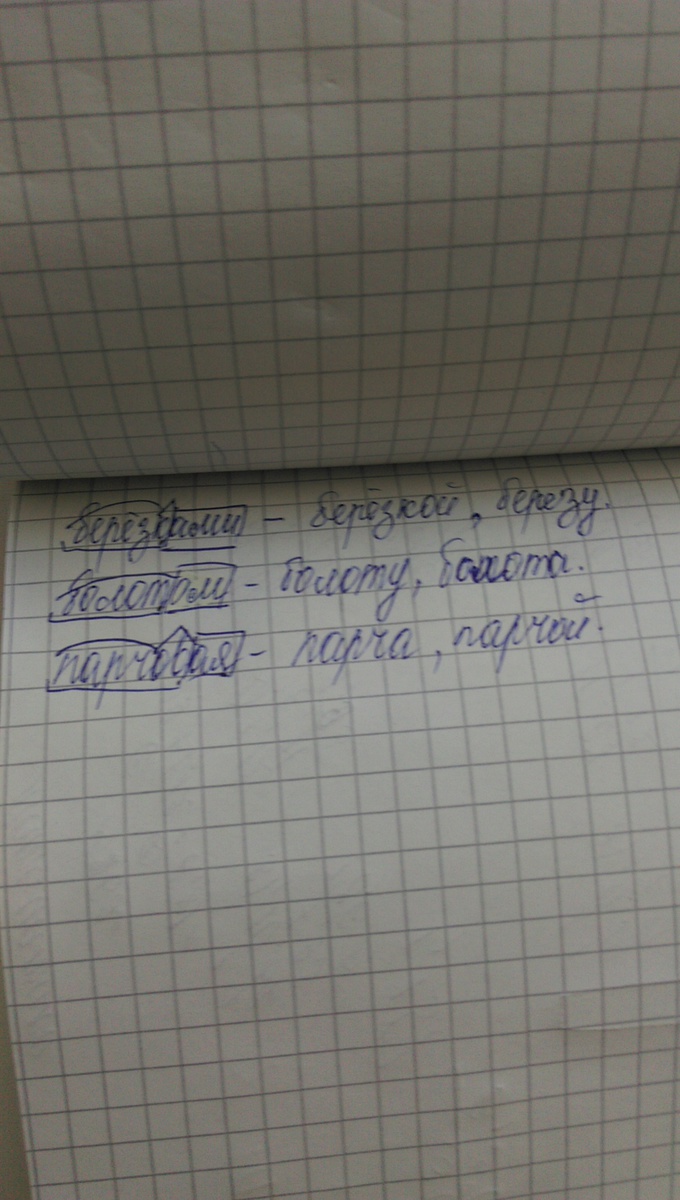 берёзками - берёзкой, березу.
болотом - болоту, болота.
парчовая - парча, парчой.